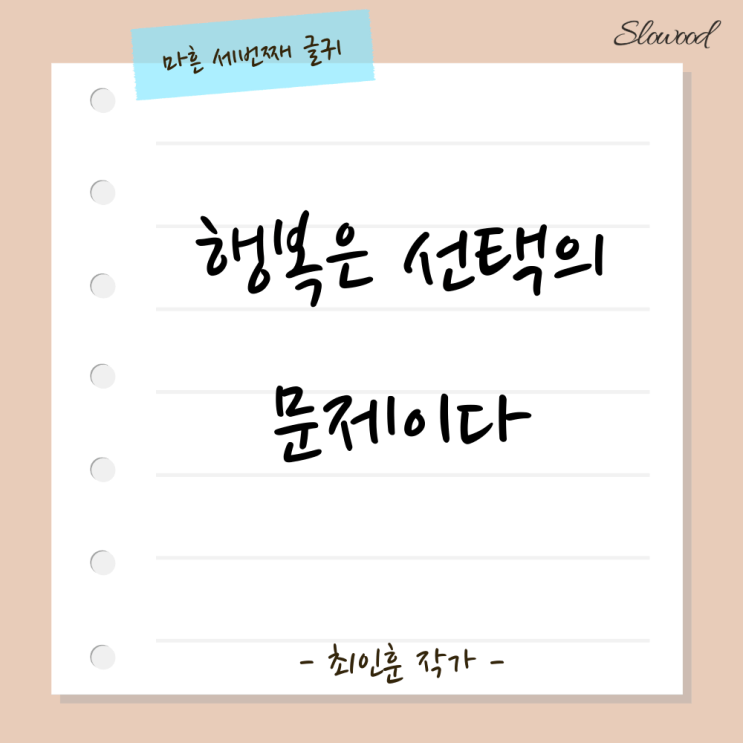 Slowood
마흔 세번째 글귀
행복은 선택의
문제이다
- 최인훈 작가 -